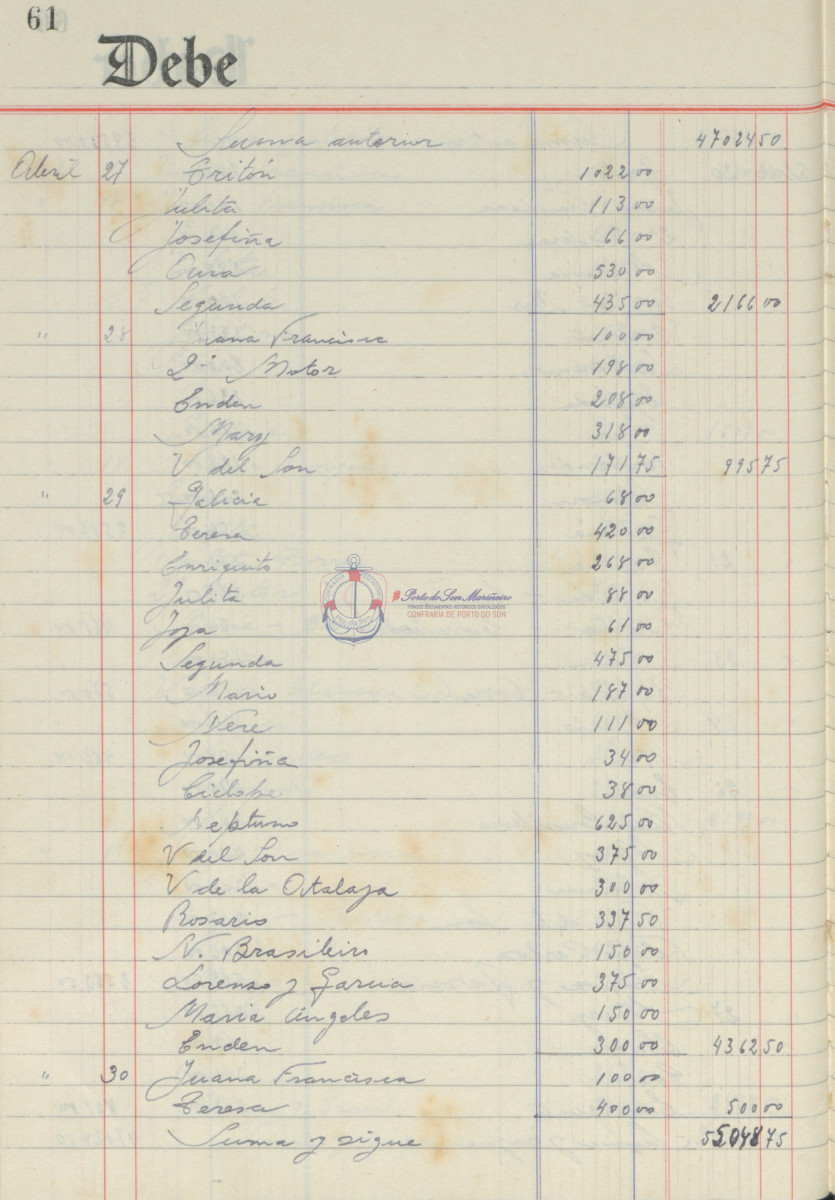 61
Debe
Suma anterior 47024 50
Abril 27 Tritón 1022 00
Julita 113 00
Josefiña 66 00
Cuna 530 00
Segunda 435 00 2166 00
" 28 Juana Francisca 100 00
2º Motor 198 00
Enden 208 00
Mary 318 00
V del Son 171 75 995 75
" 29 Galicia 68 00
Teresa 420 00
Enriquito 268 00
Julita 88 00
Jopa 61 00
Segunda 475 00
Mario 187 00
Nere 111 00
Josefiña 34 00
Ciclope 38 00
Neptuno 625 00
V del Son 375 00
V de la Atalaya 300 00
Rosario 337 50
N. Brasileiro 150 00
Lorenzo y Garcia 375 00
Maria Angeles 150 00
Enden 300 00 4362 50
" 30 Juana Francisca 100 00
Teresa 400 00 500 00
Suma y sigue 55048 75
#Porto do Son Mariñeiro
FONDOS DOCUMENTAIS HISTÓRICOS DIXITALIZADOS
CONFRARIA DE PORTO DO SON